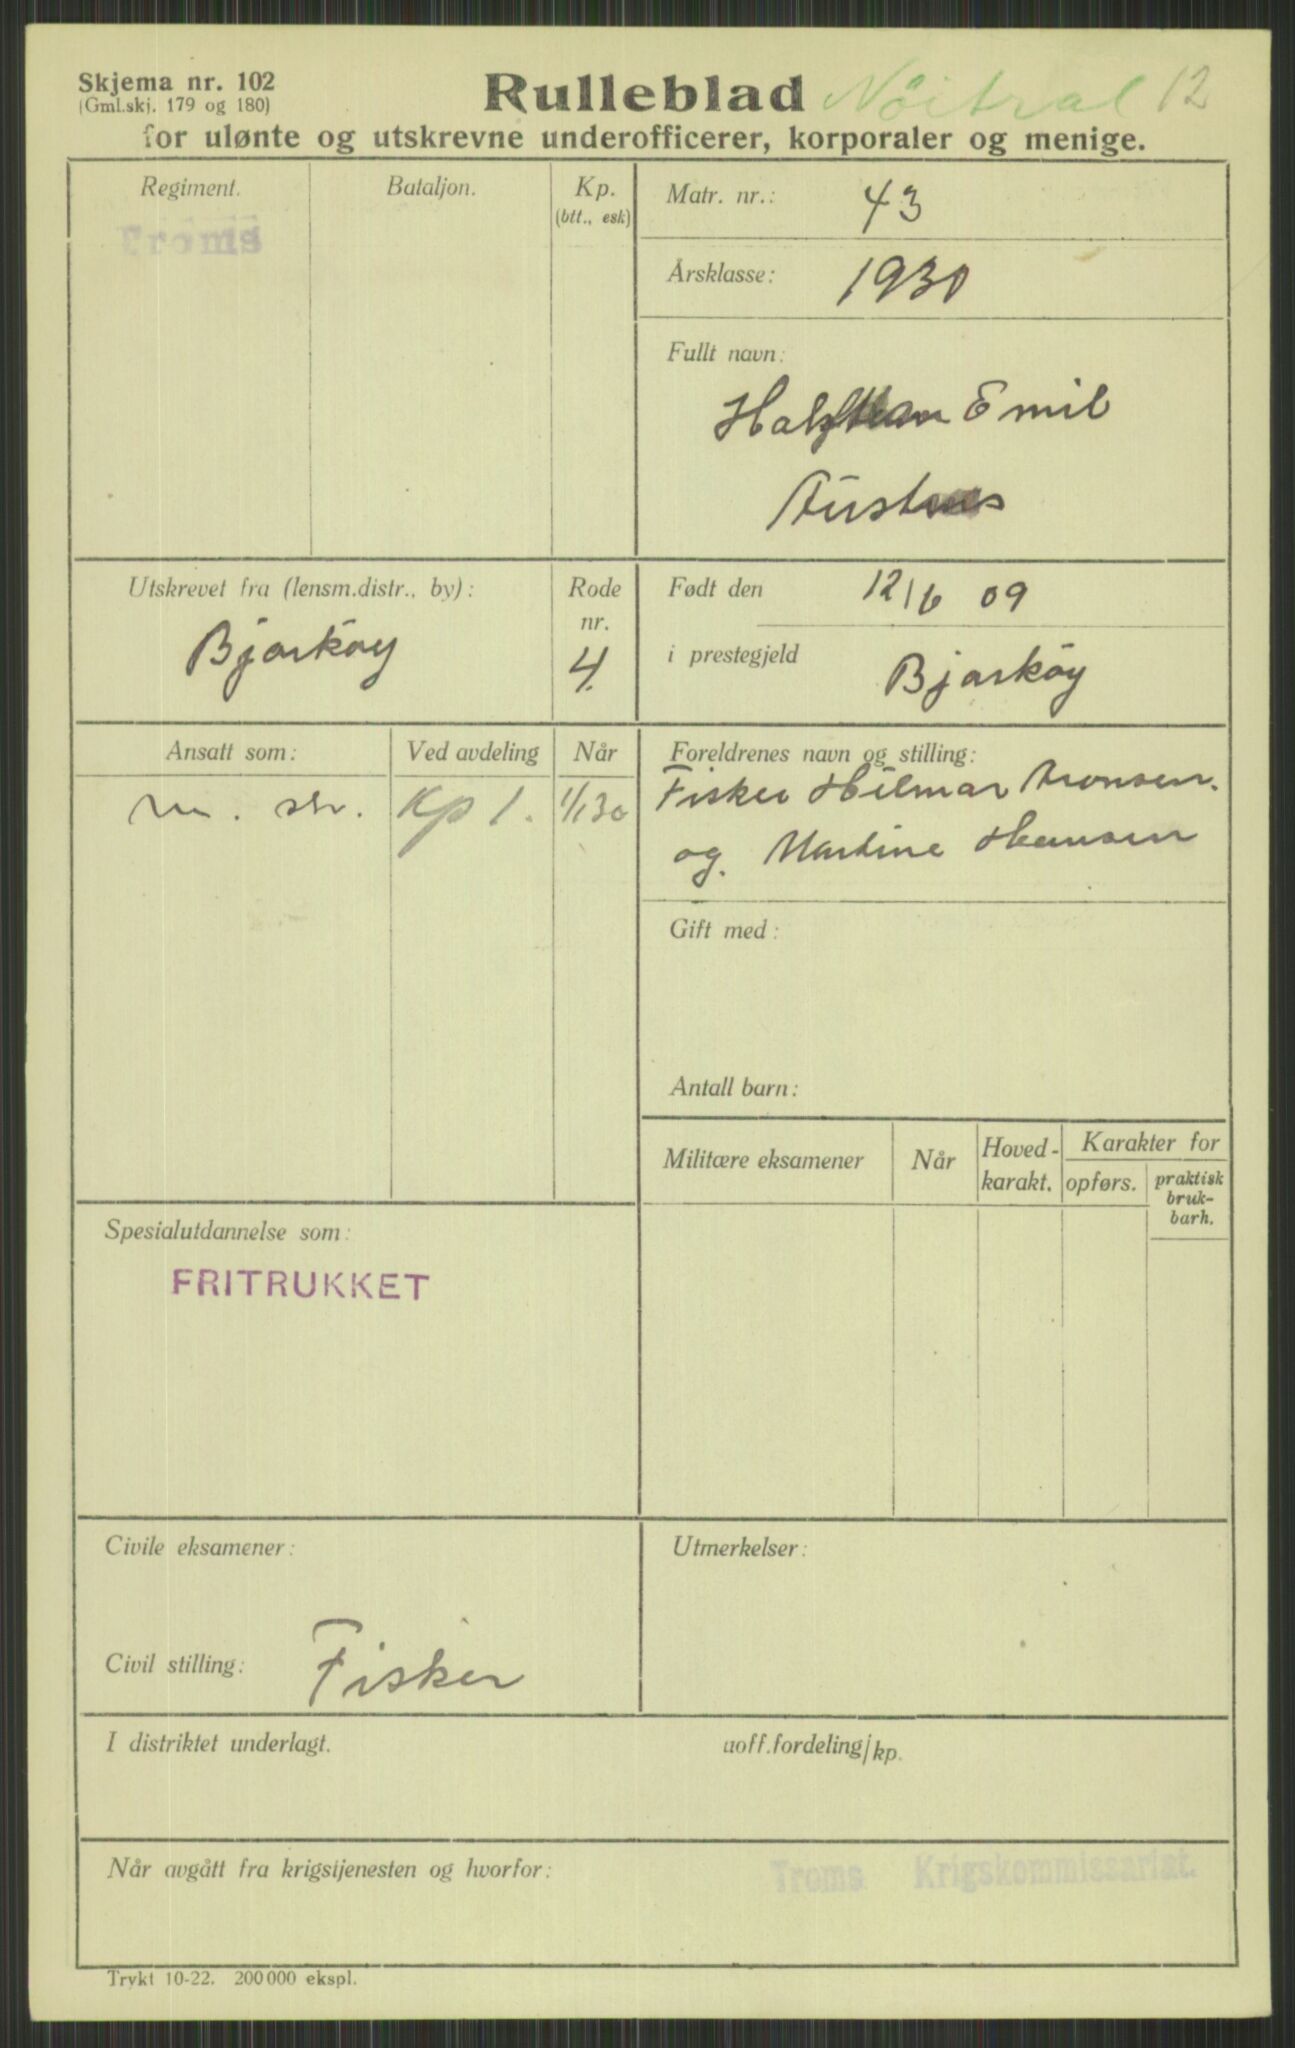 Skjema nr. 102
(Gml.skj. 179 og 180)
Rulleblad Nöitral 12
for ulønte og utskrevne underofficerer, korporaler og menige.
Regiment.
Troms
Bataljon.
Kp.
(btt., esk)
Matr. nr.: 43
Årsklasse: 1930
Fullt navn:
Emil
Utskrevet fra (lensm.distr., by):
Bjarköy
Rode
nr.
4.
Født den 12/6 09
i prestegjeld Bjarköy
Ansatt som:
Ved avdeling
Når
m. str.
Kp 1.
1/1 30
Foreldrenes navn og stilling:
Fisker Hilmar Aronsen.
og. Martine Hansen
Gift med:
Antall barn:
Militære eksamener
Når
Hoved-
karakt.
Karakter for
opførs.
praktisk
bruk-
barh.
Spesialutdannelse som:
FRITRUKKET
Civile eksamener:
Civil stilling: Fisker
Utmerkelser:
I distriktet underlagt.
uoff.fordeling/kp.
Når avgått fra krigstjenesten og hvorfor:
Troms Krigskommissariat.
Trykt 10-22. 200 000 ekspl.